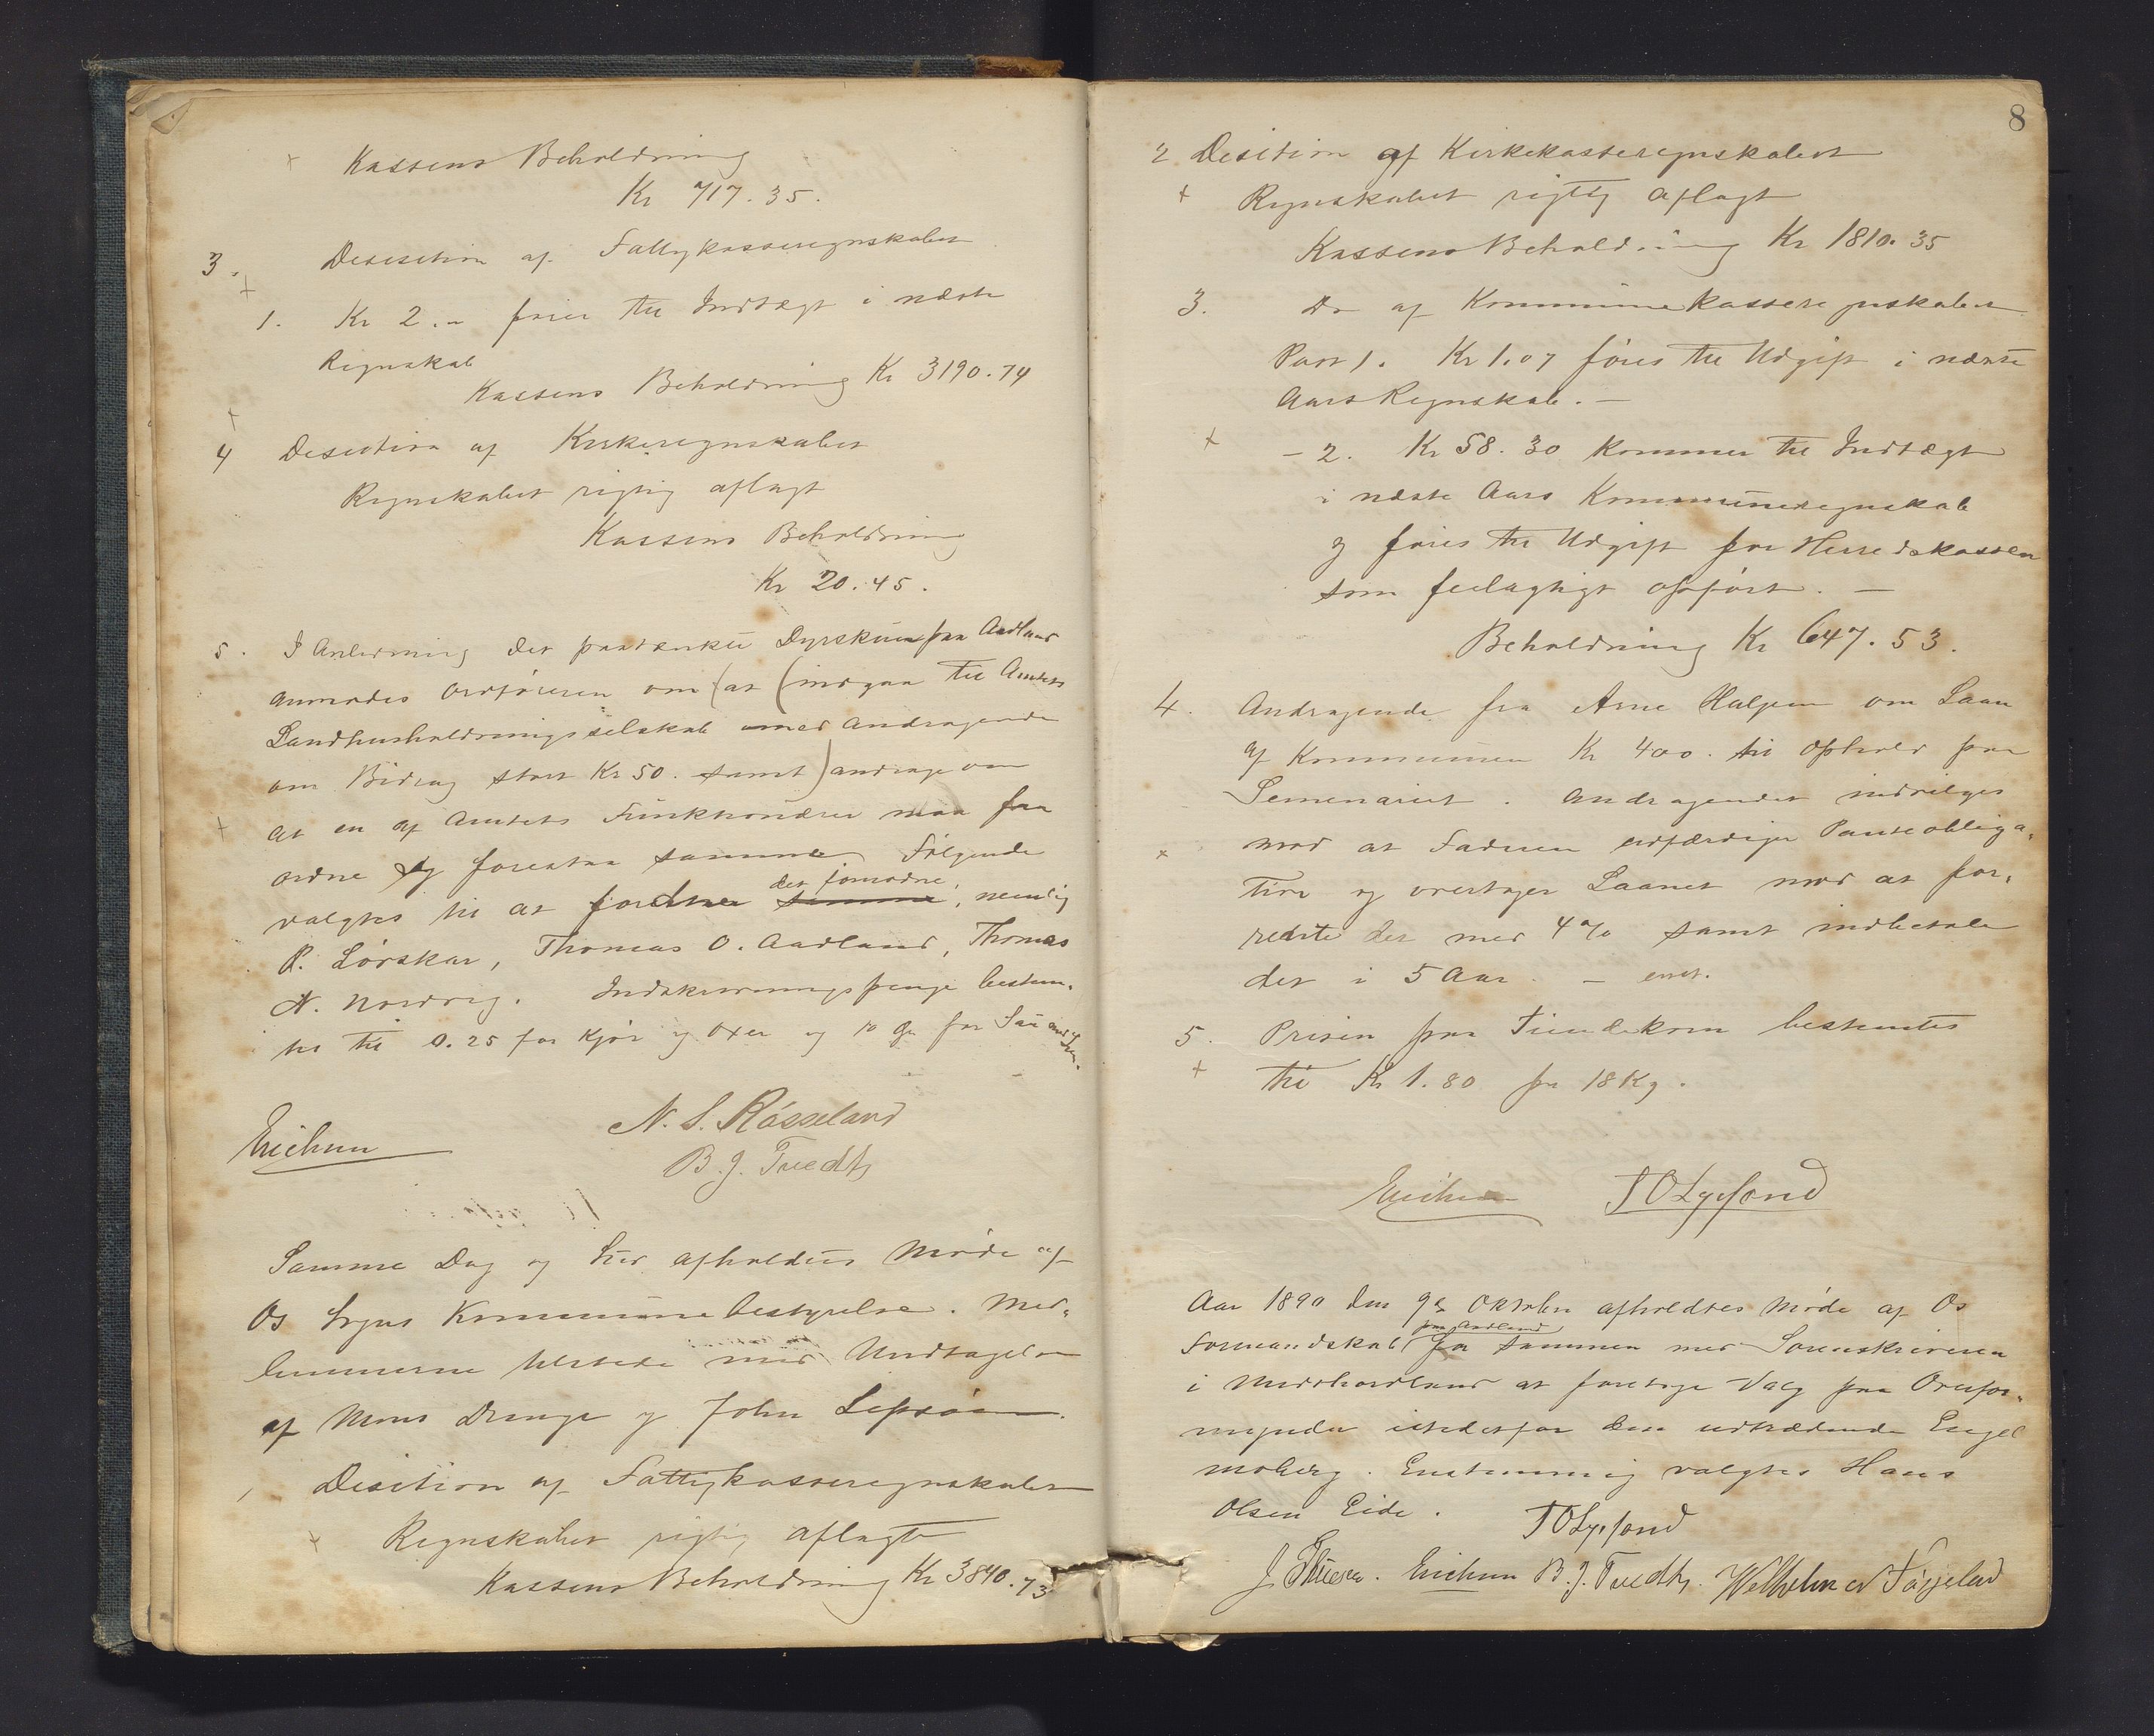 Kassens Beholdning
Kr 717.35.
3. Desisition af Fattigkasseregnskabet
1. Kr 2.- føres til Indtægt i næste
Regnskab
Kassens Beholdning Kr 3190.74
4 Desisition af Kirkeregnskabet
Regnskabet rigtig aflagt
Kassens Beholdning
Kr 20.45.
5. I Anledning det paatænkte Dyrskue paa Aadland
anmodes Ordføreren om (at (indgaa til Amtets
Landhusholdningsselskab med Andragende
om Bidrag stort Kr 50. samt) andrage om
at en af Amtets Funktionærer maa faa
ordne og forestaa samme. Følgende
valgtes til at fordne det fornødne, nemlig
P. Lørskar, Thomas O. Aadland, Thomas
N. Nordvig. Indskrivningspenge bestem-
tes til 0.25 for Kjør og Oxer og 10 Øre for Sau
Erichsen
N. S. Røsseland
B. J. Tvedt
Samme Dag og Sted afholdtes Møde af
Os Sogns Kommunebestyrelse. Med-
lemmerne tilstede med Undtagelse
af Mons Drange og John Lepsøen.
1 Desition af Fattigkasseregnskabet
Regnskabet rigtig aflagt
Kassens Beholdning Kr 3840.73
8
2 Desition af Kirkekasseregnskabet
Regnskabet rigtig aflagt
Kassens Beholdning Kr 1810.35
3. Do af Kommunekasseregnskabet
Post 1. Kr 1.07 føres til Udgift i næste
Aars Regnskab. -
- 2. Kr 58.30 kommer til Indtægt
i næste Aars Kommuneregnskab
og føres til Udgift for Herredskassen
som feilagtigt opført. -
Beholdning Kr 647.53.
4. Andragende fra Arne Haljem om Laan
af Kommunen Kr 400. til Ophold paa
Semenariet. Andragendet indvilges
mod at Faderen udfærdiger Panteobliga-
tion og overtager Laanet mod at for-
rente det med 4% samt indbetale
det i 5 Aar. - enst.
5. Prisen paa Tiendekorn bestemtes
til Kr 1.80 pr 18 Kg.
Erichsen T O Lysfond
Aar 1890 den 9de Oktober afholdtes Møde af Os
Formandskab paa Aadland for sammen med Sorenskriveren
i Midthordland at foretage Valg paa Overfor-
mynder istedetfor den udtrædende Engel
Moberg. Enstemmig valgtes Hans
Olsen Eide.
T O Lysfond
J Thuesen. Erichsen B. J. Tvedt. Wilhelm